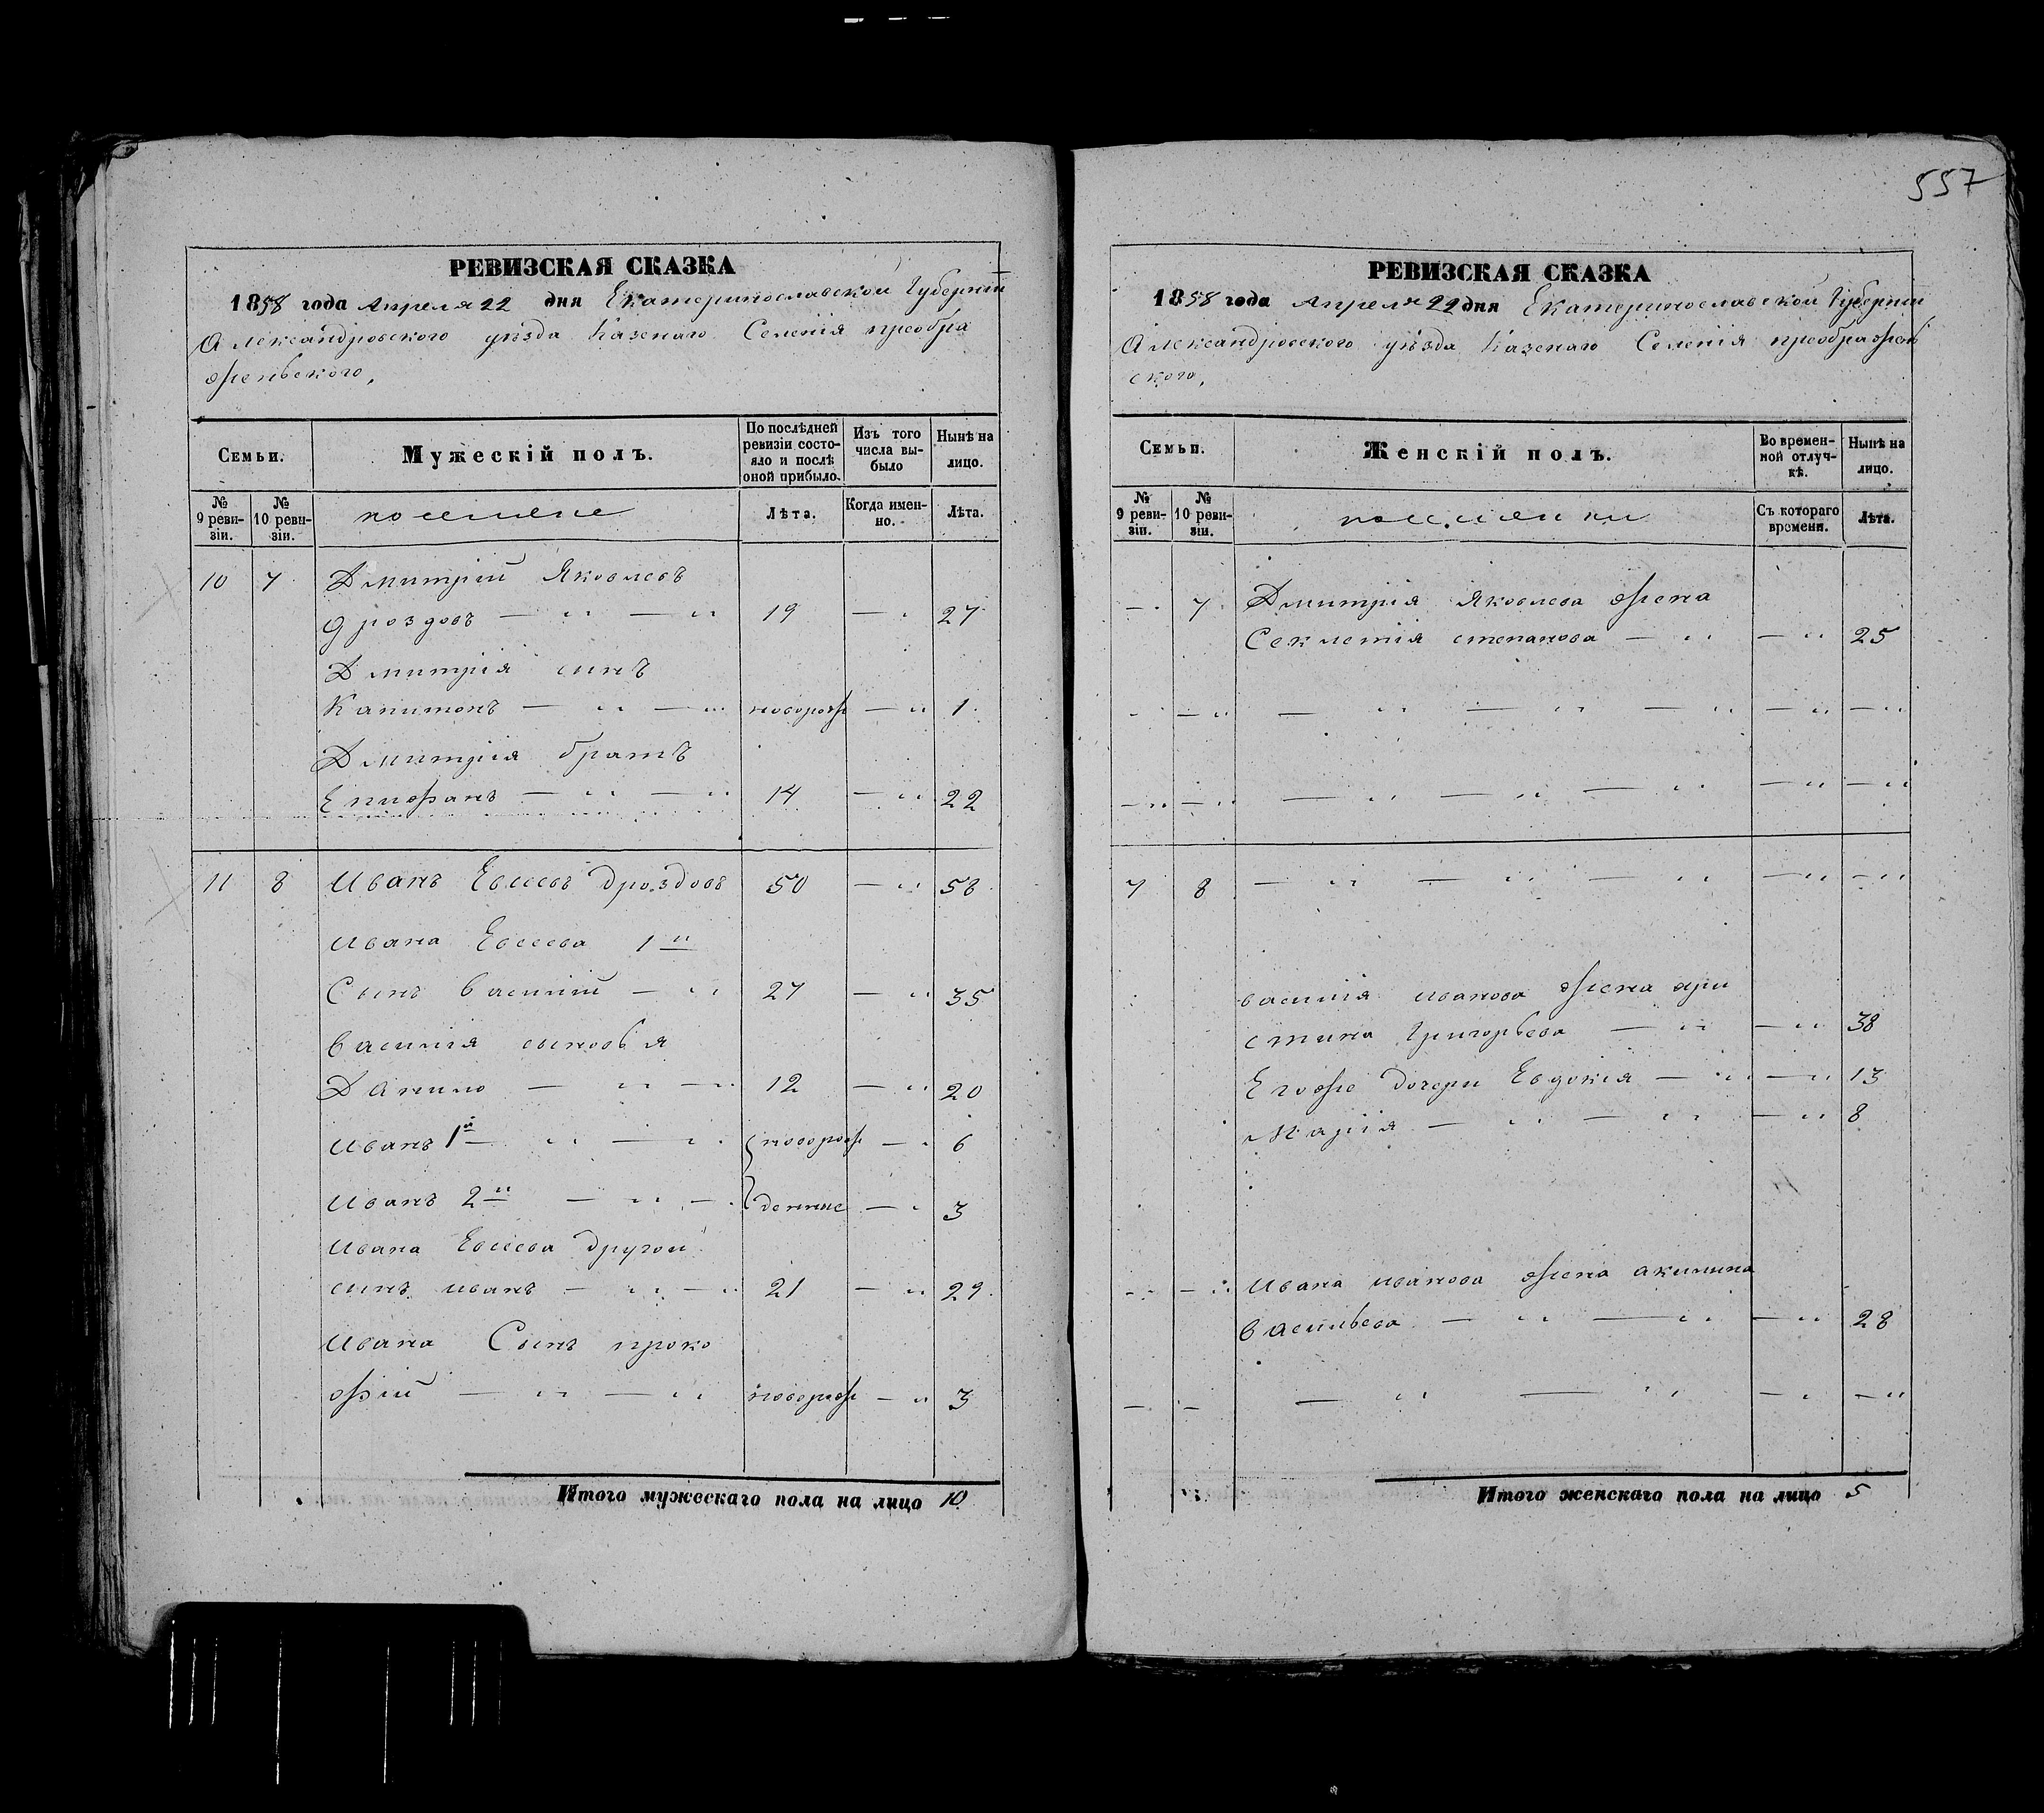 557
РЕВИЗСКАЯ СКАЗКА
1858 года Апреля 22 дня Екатеринославской Губернiи
Александровского уѣзда Казенаго Селенiя преобра
женьского,
Семьи.
Мужескiй полъ.
По послѣдней ревизiи состо-
яло и послѣ оной прибыло.
Изъ того числа вы-
было
Нынѣ на лицо.
№ 9 реви-
зiи.
№ 10 реви-
зiи.
поселяне
Лѣта.
Когда имен-
но.
Лѣта.
10 7 Дмитрiй Яковлевъ
Дроздовъ — „ — „ 19 — „ 27
Дмитрiя синъ
Капитонъ — „ — „ новорож — „ 1
Дмитрiя братъ
Епифанъ — „ — „ 14 — „ 22
11 8 Иванъ Евсеевъ Дроздовъ 50 — „ 58
Ивана Евсеева 1й
Сынъ Василiй — „ 27 — „ 35
Василiя сыновья
Данило — „ — „ 12 — „ 20
Иванъ 1й — „ — „ новорож — „ 6
Иванъ 2й — „ — денные — „ 3
Ивана Евсеева другой
синъ иванъ — „ — „ 21 — „ 29
Ивана Сынъ проко
фiй — „ — „ новорож — „ 3
Итого мужескаго пола на лицо 10
РЕВИЗСКАЯ СКАЗКА
1858 года Апреля 22 дня Екатеринославской Губернiи
Александровского уѣзда Казенаго Селенiя преображень
ского,
Семьи.
Женскiй полъ.
Во времен-
ной отлуч-
кѣ.
Нынѣ на лицо.
№ 9 реви-
зiи.
№ 10 реви-
зiи.
поселянки
Съ котораго времени.
Лѣта.
— 7 Дмитрiя Яковлева жена
Секлетiя степанова — „ — „ 25
— „ — „ — „ — „ — „ — „ — „
— „ — „ — „ — „ — „ — „ — „
7 8 — „ — „ — „ — „ — „
василiя иванова жена хри
стина Григорьева — „ — „ 38
Егоже дочери Евдокiя — „ — „ 13
Марiя — „ — „ — „ 8
— „ — „ Ивана иванова жена акилина
Васильева — „ — „ — „ 28
— — — „ — „ — „ — „
Итого женскаго пола на лицо 5